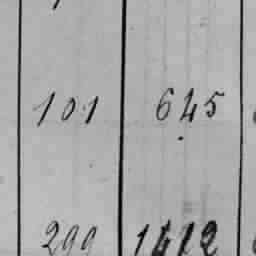 101 645
299 1412